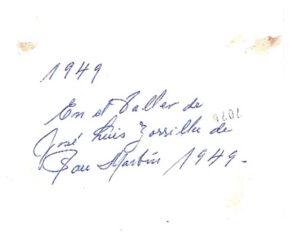 1949
En el Taller de
José Luis Zorrilla de
San Martín 1949-